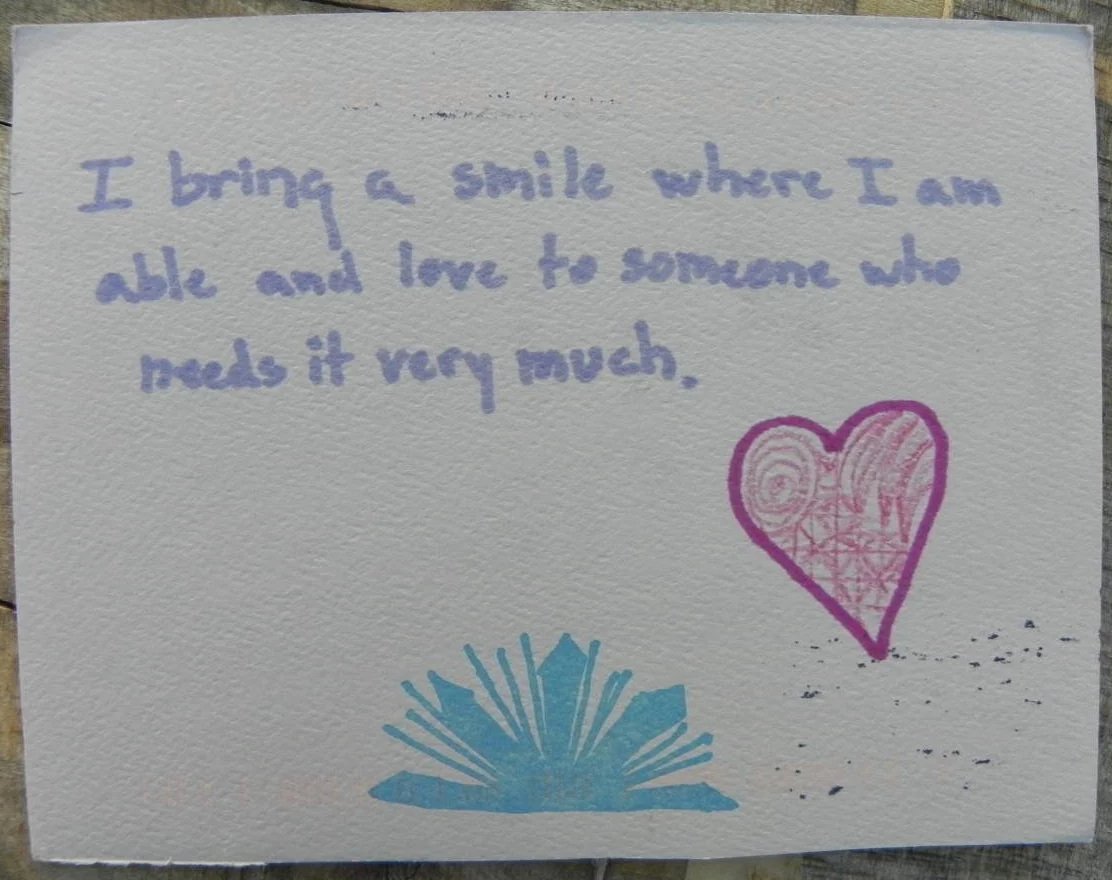 I bring a smile where I am
able and love to someone who
needs it very much.